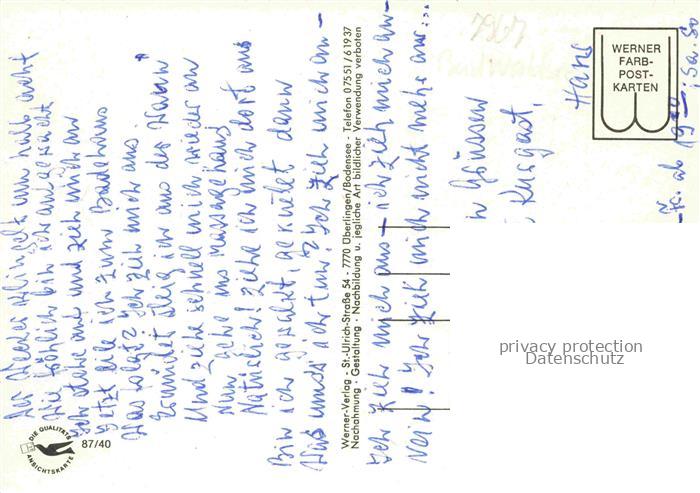 Der Wecker klingelt um halb acht
Wie fröhlich bin ich aufgewacht
Ich stehe auf und zieh mich an
Jetzt eile ich zum Badehaus
Was folgt? Ich zieh mich aus.
Ermüdet steig ich aus der Wann'
Und ziehe schnell mich wieder an
Nun gehe ins Massagehaus
Natürlich! Ziehe ich mich dort aus
Bin ich gewalkt, geknetet dann
Was muss ich tun? Ich zieh mich an –
Ich ziehe mich aus – ich zieh mich an –
Nein! Ich zieh' mich nicht mehr an...
n Grüssen
Kurgast,
Hans
7967
Bad Waldsee
ab 19
Werner-Verlag - St.-Ulrich-Straße 54 - 7770 Überlingen/Bodensee - Telefon 07551/61937
Nachahmung · Gestaltung · Nachbildung u. jegliche Art bildlicher Verwendung verboten
WERNER
FARB-
POST-
KARTEN
DIE QUALITÄTS
ANSICHTSKARTE
87/40
privacy protection
Datenschutz